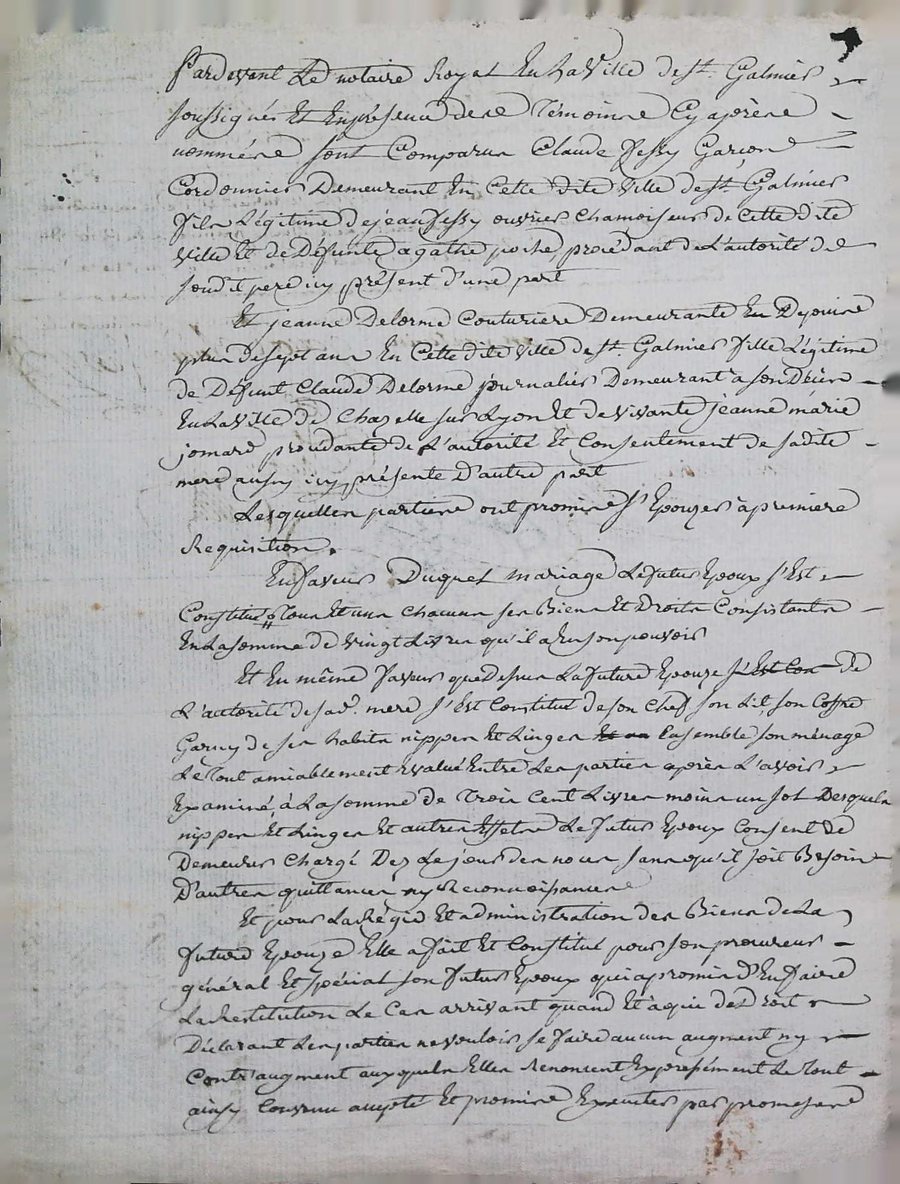 Pardevant Le notaire Royal En La Ville de st. Galmier
soussignés Et En présence des Témoins Cy après
nommés sont Comparus Claude fessy Garçon
Cordonnier Demeurant En Cette dite Ville de st. Galmier
fils Légitime de jean fessy ouvrier Chamoiseur de Cette dite
Ville Et de Défunte agathe procédant de L'autorité de
sondit pere icy présent d'une part
Et jeanne Delorme Couturiere Demeurante En Depuis
plus de sept ans En Cette dite Ville de st. Galmier fille Légitime
de Défunt Claude Delorme journalier Demeurant a son Décès
En La Ville de Chazelle sur Lyon Et de vivante jeanne marie
jomard procédante de L'autorité Et Consentement de sadite
mere aussy icy présente D'autre part
Lesquelles parties ont promis s'Epouzer à premiere
Requisition.
En faveur Duquel mariage Le futur Epoux s'Est
Constitué Tous Et uns chacuns ses Biens Et Droits Consistants
En La somme de vingt Livres qu'il a En son pouvoir
Et En même faveur que Dessus La future Epouze s'Est Con de
L'autorité de sad. mere s'Est Constitué de son Chef son Lit, son Coffre
Garny de ses habits nippes Et Linges Et Ensemble son ménage
Le Tout amiablement Evalué Entre Les parties après L'avoir
Examiné, à La somme de Trois Cent Livres moins un sol Desquels
nippes Et Linges Et autres Effets Le futur Epoux Consent de
Demeurer Chargé Dez Le jour des noces sans qu'il soit Besoin
D'autres quittances ny Reconnoissances
Et pour La Régie Et administration des Biens de La
future Epouze Elle a fait Et Constitué pour son procureur
général Et spécial son futur Epoux qui a promis d'En faire
La Restitution Le Cas arrivant quand Et à qui de Droit
Déclarant Les parties ne vouloir se faire aucun augment ny
Contr'augment auxquels Elles Renoncent Expressément Le Tout
ainsy Convenu accepté Et promis Executer par promesses